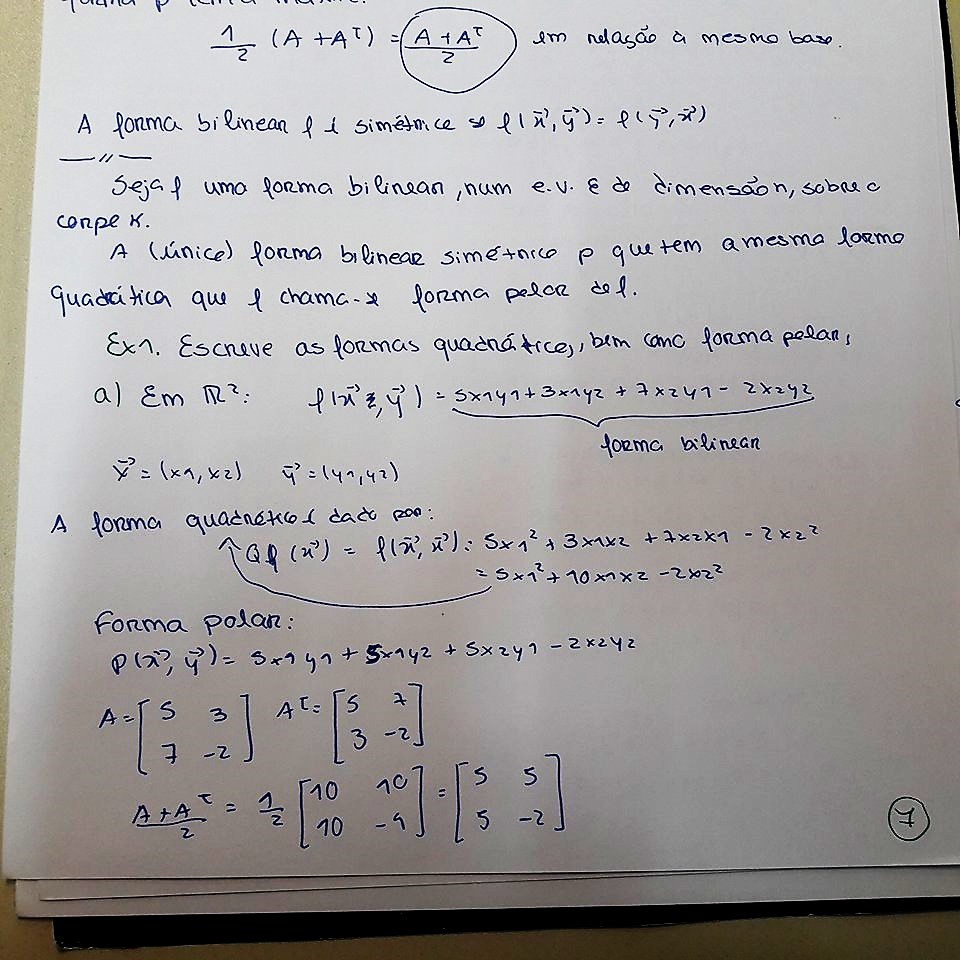 1/2 (A + Aᵀ) = A + Aᵀ/2 em relação à mesmo base.
A forma bilinear f é simétrica se f(x⃗, y⃗) = f(y⃗, x⃗)
—//—
Seja f uma forma bilinear, num e.v. E de dimensão n, sobre o
corpo K.
A (única) forma bilinear simétrica p que tem a mesma forma
quadrática que f chama-se forma polar de f.
Ex1. Escreve as formas quadráticas, bem como forma polar,
a) Em ℝ²: f(x⃗, y⃗) = 5x1y1 + 3x1y2 + 7x2y1 - 2x2y2
forma bilinear
x⃗ = (x1, x2) y⃗ = (y1, y2)
A forma quadrática é dado por:
Qf (x⃗) = f(x⃗, x⃗) = 5x1² + 3x1x2 + 7x2x1 - 2x2²
= 5x1² + 10x1x2 - 2x2²
Forma polar:
p(x⃗, y⃗) = 5x1y1 + 5x1y2 + 5x2y1 - 2x2y2
A = [5 3 Aᵀ = [5 7
7 -2] 3 -2]
A + Aᵀ/2 = 1/2 [10 10 = [5 5
10 -4] 5 -2]
7